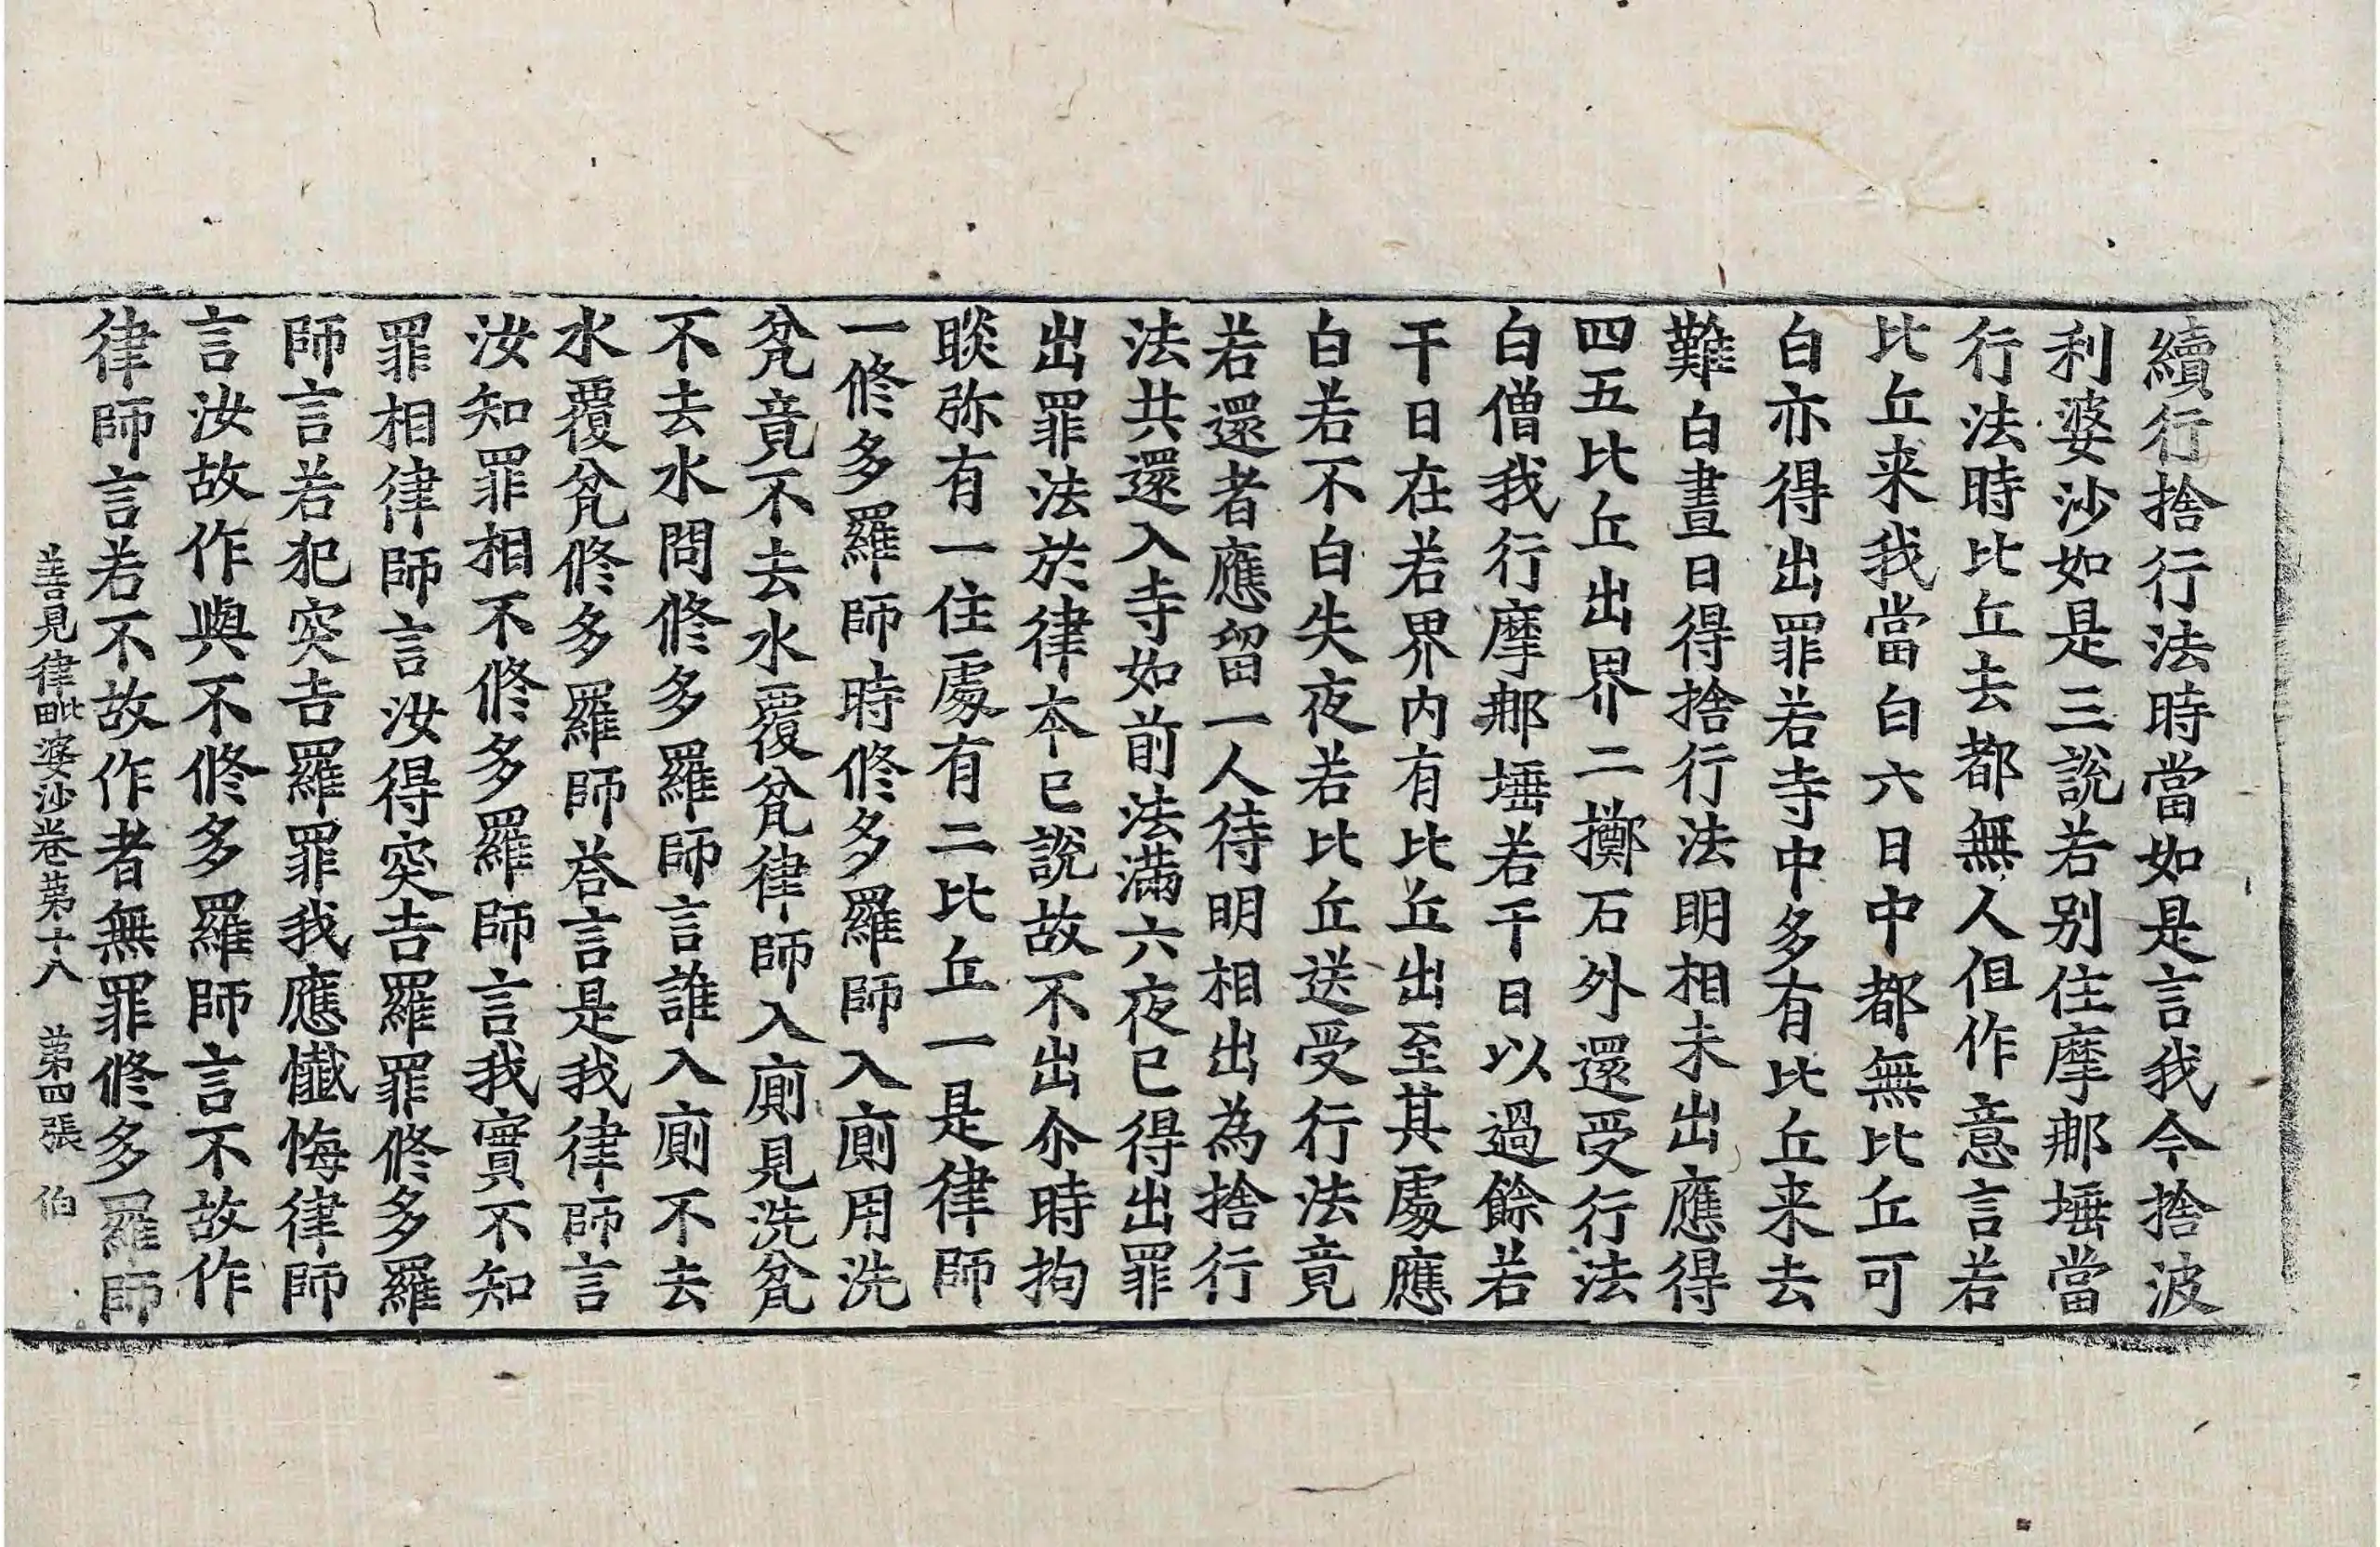 續行捨行法時當如是言我今捨波
利婆沙如是三說若别住摩那埵當
行法時比丘去都無人但作意言若
比丘来我當白六日中都無比丘可
白亦得出罪若寺中多有比丘来去
難白晝日得捨行法明相未出應得
四五比丘出界二擲石外還受行法
白僧我行摩那埵若干日以過餘若
干日在若界内有比丘出至其處應
白若不白失夜若比丘送受行法竟
若還者應留一人待明相出為捨行
法共還入寺如前法滿六夜已得出罪
出罪法於律本已說故不出尒時拘
睒弥有一住處有二比丘一是律師
一修多羅師時修多羅師入廁用洗
瓮竟不去水覆瓮律師入廁見洗瓮
不去水問修多羅師言誰入廁不去
水覆瓮修多羅師荅言是我律師言
汝知罪相不修多羅師言我實不知
罪相律師言汝得突吉羅罪修多羅
師言若犯突吉羅罪我應懺悔律師
言汝故作與不修多羅師言不故作
律師言若不故作者無罪修多羅師
善見律毗婆沙卷苐十八 苐四張 伯